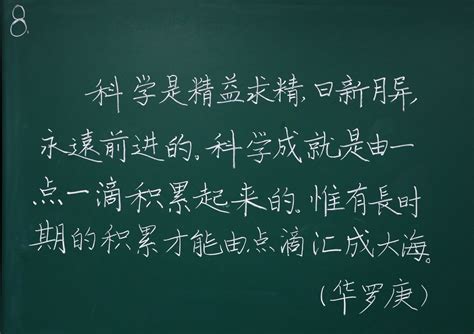 8
科学是精益求精,日新月异,
永遠前进的。科学成就是由一
点一滴积累起来的。惟有長时
期的积累才能由点滴汇成大海。
(华罗庚)